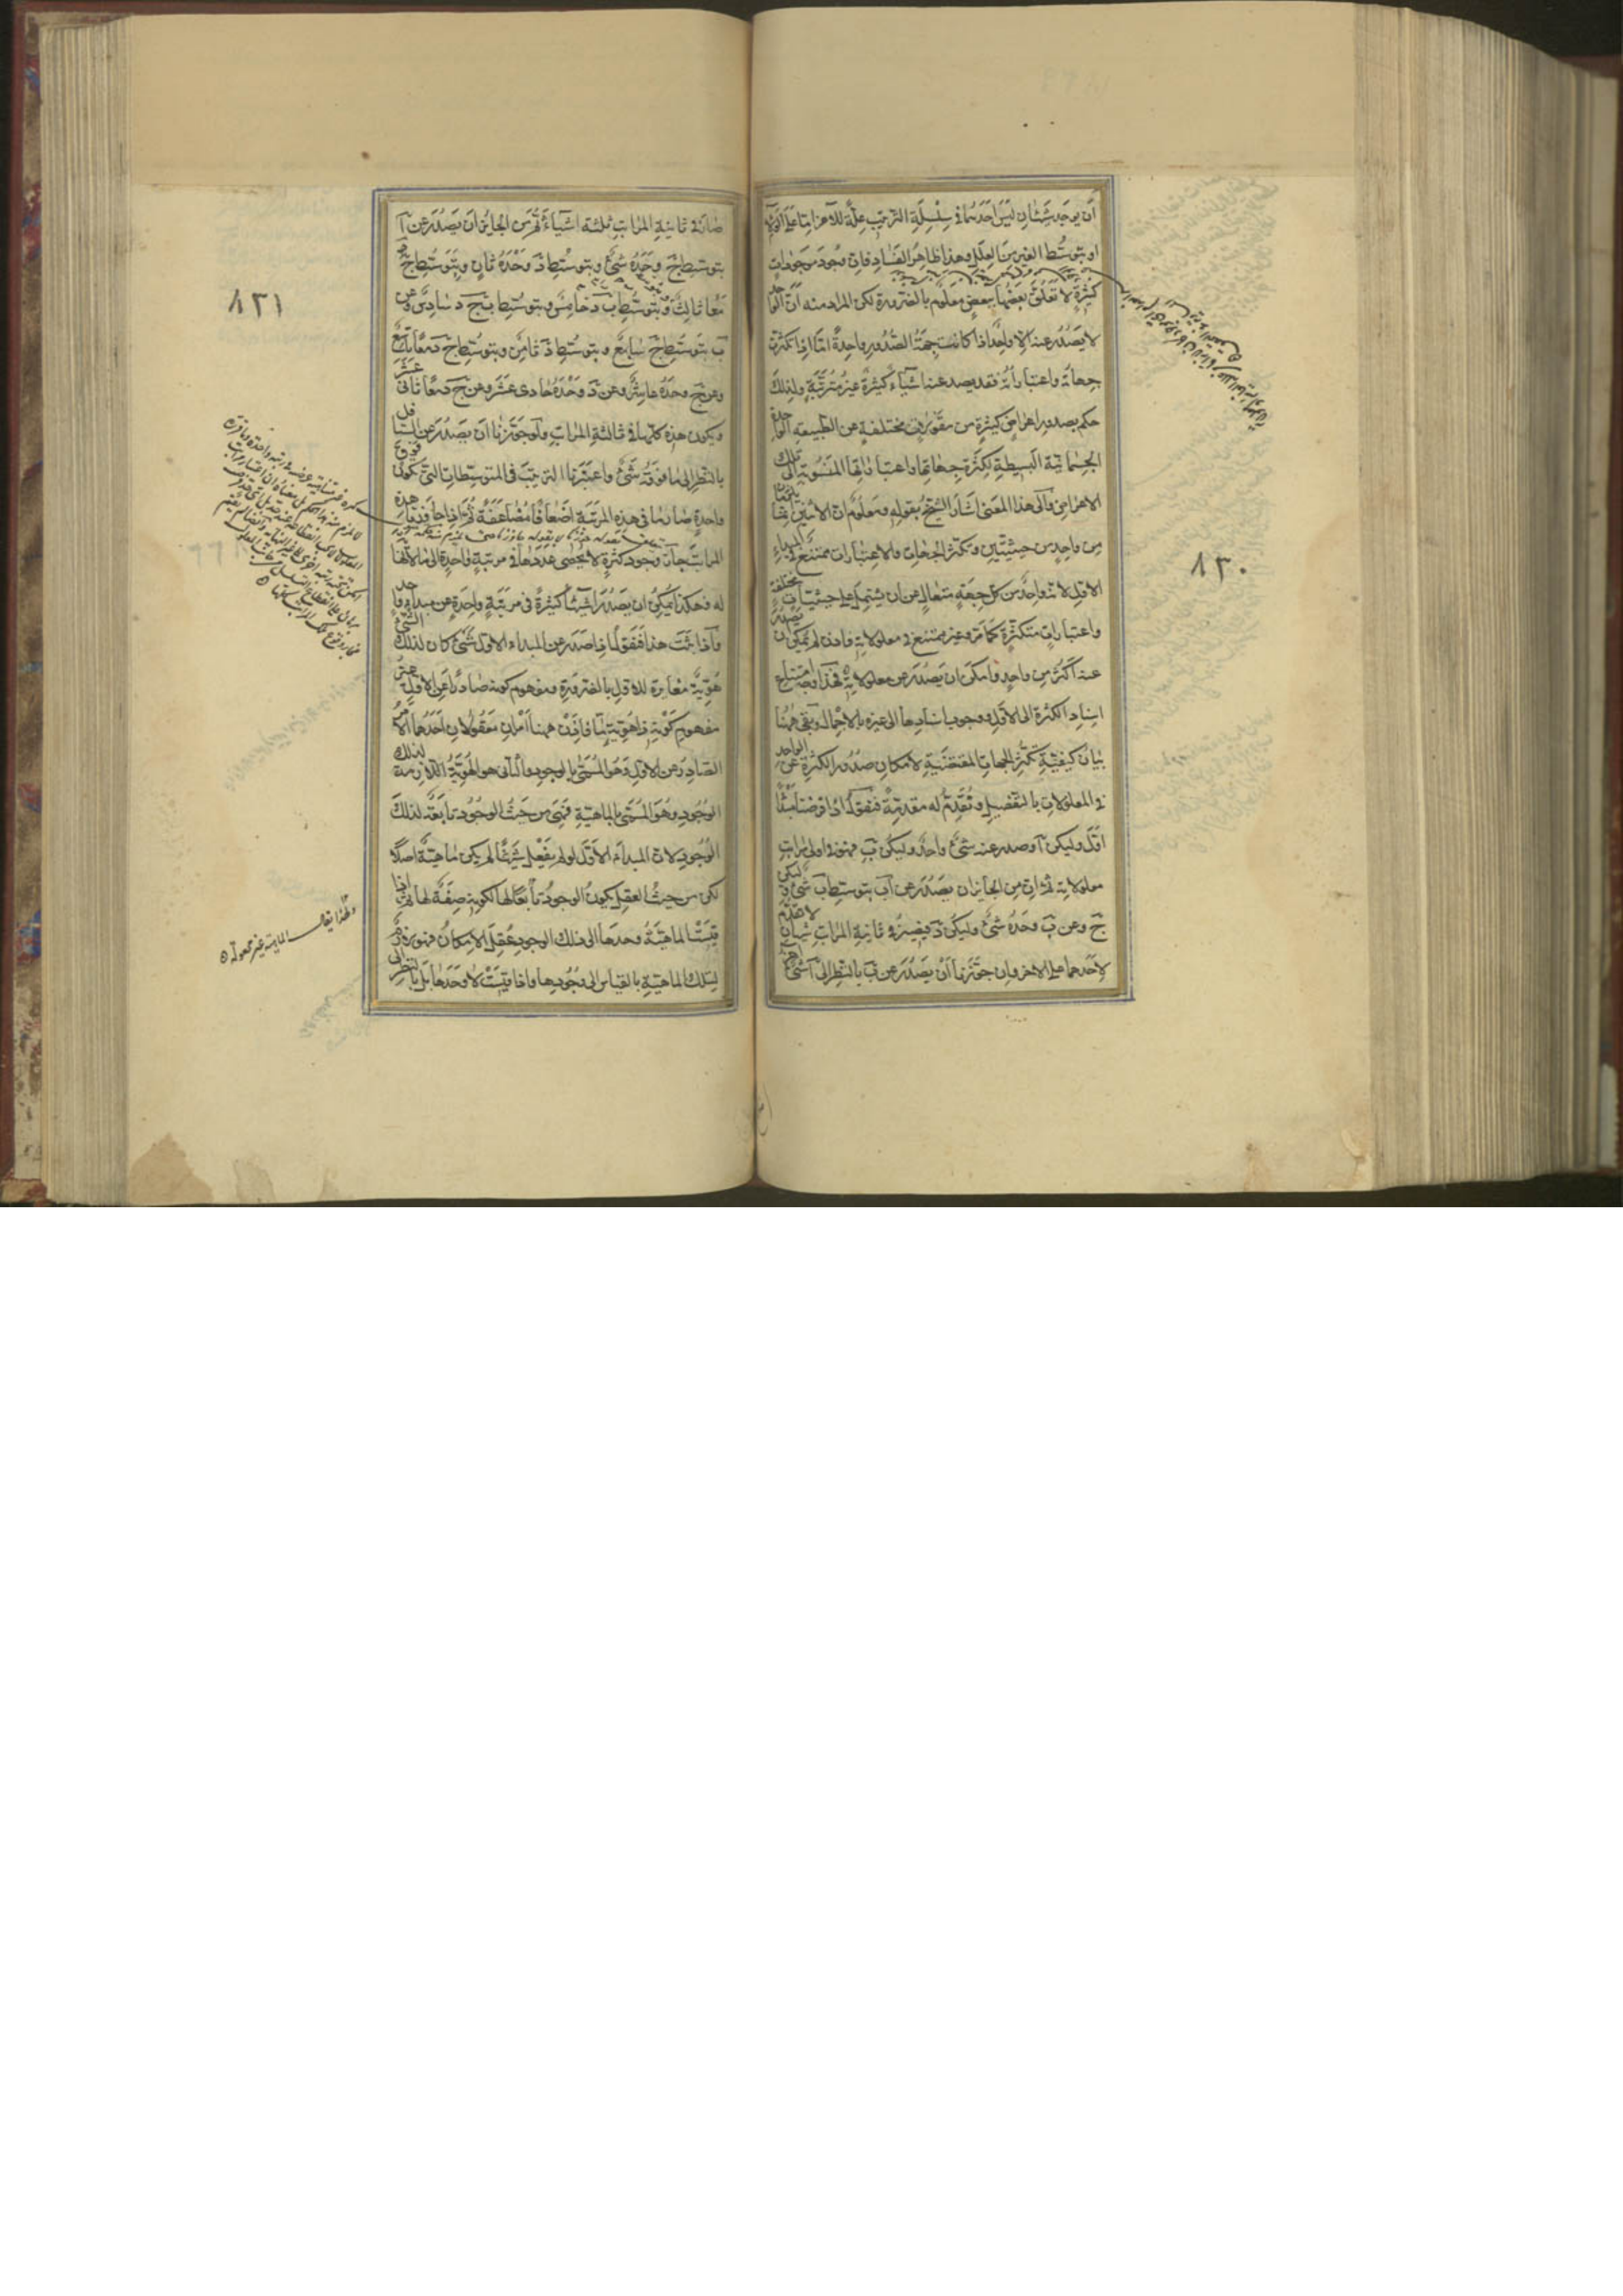 أن يوجد شيئان ليس احدهما في سلسلة الترتيب علة للآخر اما على الولاء
او بتوسط الغير من العلل وهذا ظاهر الفساد فان وجود موجودات
كثيرة لا تعلق بعضها ببعض معلوم بالضرورة لكن المراد منه ان الواحد
لا يصدر عنه الا واحد اذا كانت جهة الصدور واحدة اما اذا كثرت
جهاته واعتباراته فقد يصدر عنه اشياء كثيرة غير مترتبة ولذلك
حكم بصدور اعراض كثيرة من مقولات مختلفة عن الطبيعة الواحدة
الجسمانية البسيطة لكثرة جهاتها واعتباراتها المنسوبة الى تلك
الاعراض والى هذا المعنى اشار الشيخ بقوله ومعلوم ان الاثنين انما يلزمان
من واحد من حيثيتين وتكثر الجهات والاعتبارات ممتنع في المبداء
الاول لانه واحد من كل جهة متعال عن ان يشتمل على حيثيات مختلفة
واعتبارات متكثرة كما مر وغير ممتنع في معلولاته فاذن لم يمكن ان يصدر
عنه اكثر من واحد وامكن ان يصدر عن معلولاته فهذا وجه امتناع
اسناد الكثرة الى الاول ووجوب اسنادها الى غيره بالاجمال وبقي ههنا
بيان كيفية تكثر الجهات المقتضية لامكان صدور الكثرة عن الواحد
في المعلولات بالتفصيل ونقدم له مقدمة فنقول اذا فرضنا مبدأ
اول وليكن آ وصدر عنه شيء واحد وليكن ب فهو في اولى مراتب
معلولاته ثم ان من الجائز ان يصدر عن آ بتوسط ب شيء وليكن
ج وعن ب وحده شيء وليكن د فيصير في ثانية المراتب شيئان لا تقدم
لاحدهما على الاخر وان جوزنا أن يصدر عن ب بالنظر الى آ شيء اخر
٨٣٠
صار في ثانية المراتب ثلثة اشياء ثم من الجائز ان يصدر عن آ
بتوسط ج وحده شيء وبتوسط د وحده ثان وبتوسط ج د
معا ثالث وبتوسط ب ج رابع وبتوسط ب د خامس وبتوسط ب ج د سادس وعن
ب بتوسط ج سابع وبتوسط د ثامن وبتوسط ج د معا تاسع
وعن ج وحده عاشر وعن د وحده حادى عشر وعن ج د معا ثانى عشر
ويكون هذه كلها في ثالثة المراتب ولو جوزنا ان يصدر عن السافل
بالنظر الى ما فوقه شيء واعتبرنا الترتيب في المتوسطات التي تكون فوق
واحدة صار ما في هذه المرتبة اضعافا مضاعفة ثم اذا جاوزنا هذه
المراتب جاز وجود كثرة لا يحصى عددها في مرتبة واحدة الى ما لا نهاية
له فهكذا يمكن ان يصدر اشياء كثيرة في مرتبة واحدة عن مبداء واحد
واذا ثبت هذا فنقول اذا صدر عن المبداء الاول شيء كان لذلك الشيء
هوية مغايرة للاول بالضرورة ومفهوم كونه صادرا عن الاول غير
مفهوم كونه ذا هوية ما فاذن ههنا امران معقولان احدهما الامر
الصادر عن الاول وهو المسمى بالوجود والثاني هو الهوية اللازمة لذلك
الوجود وهو المسمى بالماهية فهي من حيث الوجود تابعة لذلك
الوجود لان المبداء الاول لو لم يفعل شيئا لم يكن ماهية اصلا
لكن من حيث العقل يكون الوجود تابعا لها لكونه صفة لها ثم اذا
قيست الماهية وحدها الى ذلك الوجود عقل الامكان فهو لازم
لتلك الماهية بالقياس الى وجودها واذا قيست لا وحدها بل بالنظر الى
٨٣١
ولهذا يقال الماهية غير مجعولة